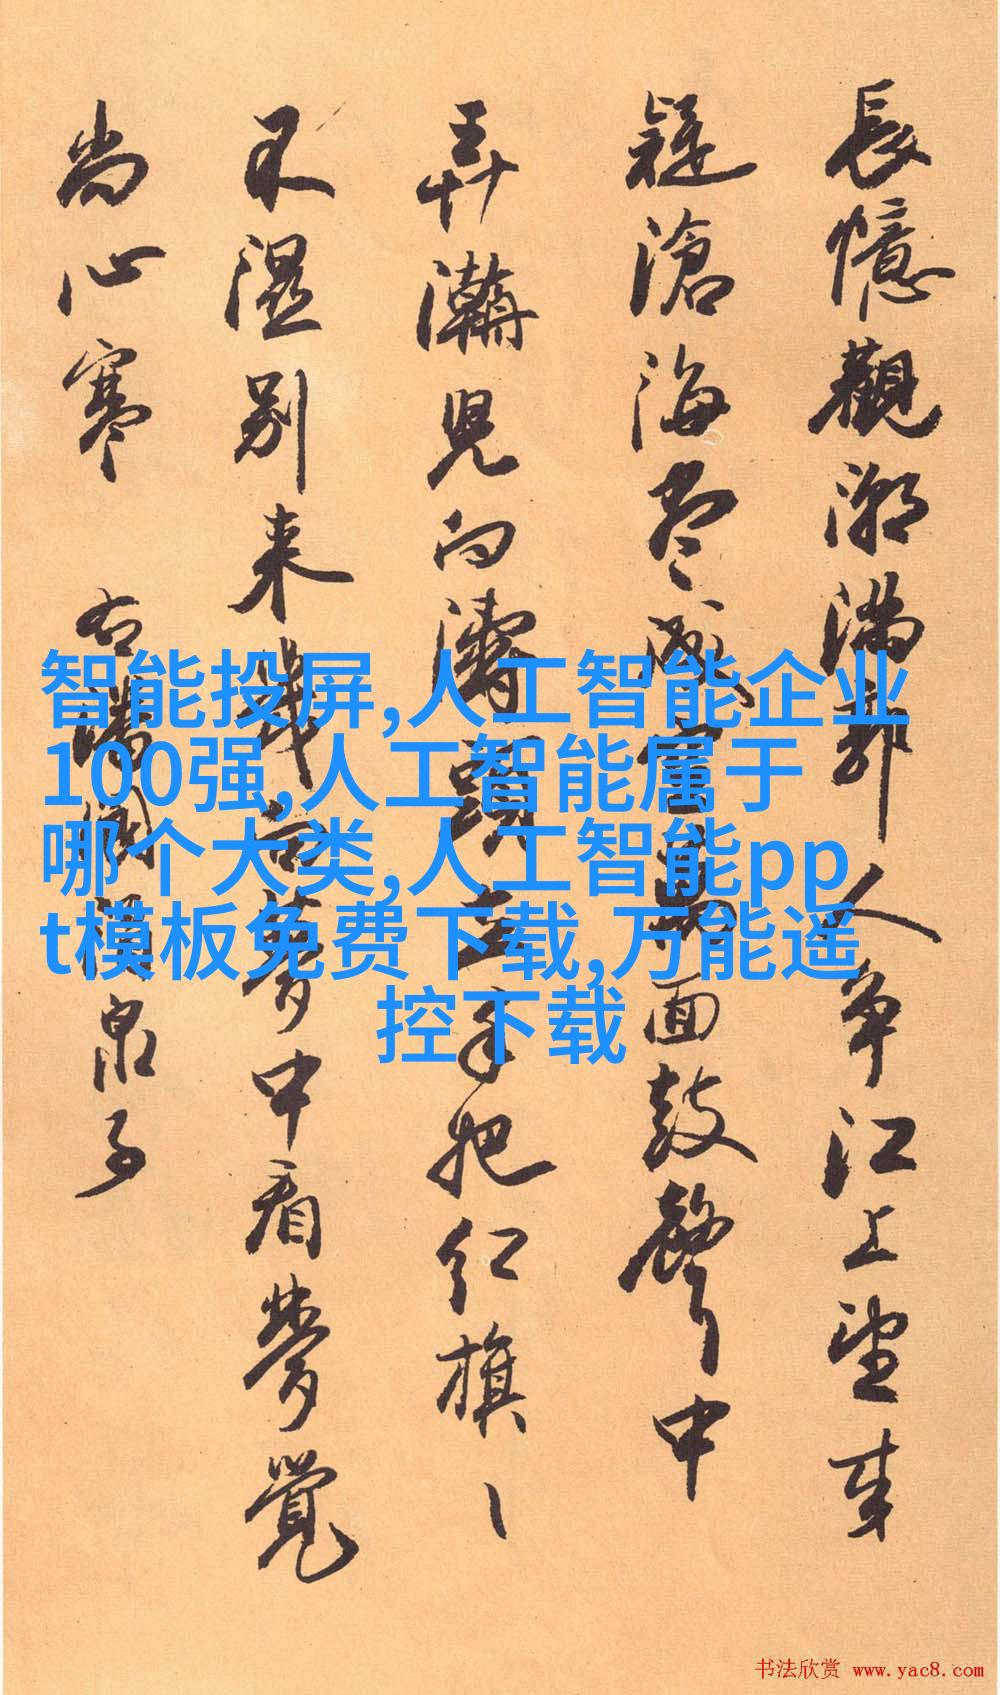 長憶觀潮滿郭人爭江上望来
疑滄海盡成空萬面鼓聲中
弄濤児向濤頭立手把红旗〻
不濕别来幾向夢中看夢覺
尚心寒 右潘閬酒泉子
智能投屏,人工智能企业
100强,人工智能属于
哪个大类,人工智能pp
t模板免费下载,万能遥
控下载
书法欣赏 www.yac8.com